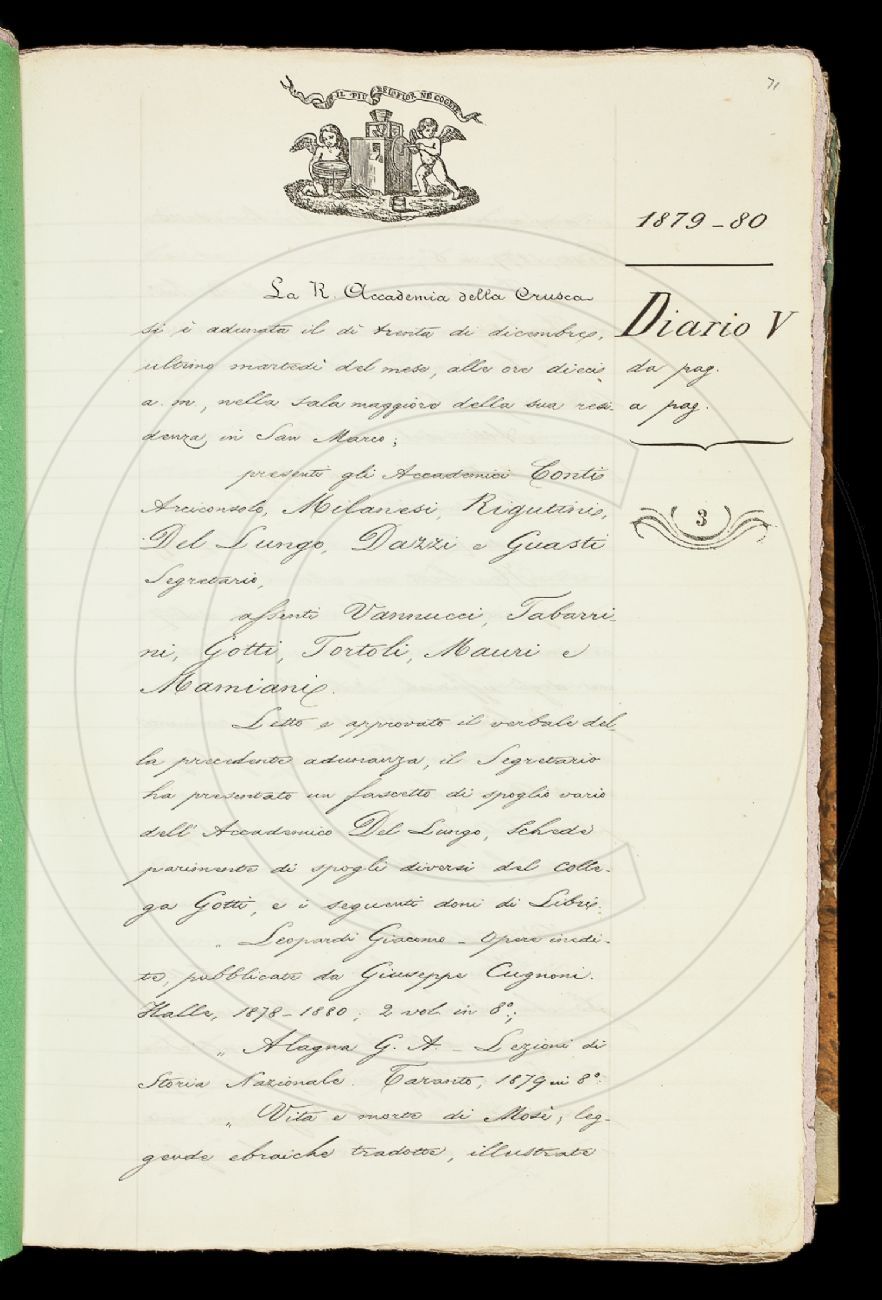 IL PIÙ BEL FIOR NE COGLIE
71
1879-80
La R. Accademia della Crusca
si è adunata il dì trenta di dicembre,
ultimo martedì del mese, alle ore dieci
a. m, nella sala maggiore della sua resi-
denza in San Marco;
Diario V
da pag.
a pag.
3
presenti gli Accademici Conti
Arciconsolo, Milanesi, Rigutini,
Del Lungo, Dazzi e Guasti
Segretario,
assenti Vannucci, Tabarri-
ni, Gotti, Tortoli, Mauri e
Mamiani.
Letto e approvato il verbale del-
la precedente adunanza, il Segretario
ha presentato un fascetto di spoglio vario
dell' Accademico Del Lungo, Schede
parimente di spogli diversi del Colle-
ga Gotti, e i seguenti doni di Libri.
„ Leopardi Giacomo - Opere inedi-
te, pubblicate da Giuseppe Cugnoni.
Halle, 1878-1880; 2 vol. in 8°;
„ Alagna G. A. - Lezioni di
Storia Nazionale. Taranto, 1879 in 8°.
„ Vita e morte di Mosè, leg-
gende ebraiche tradotte, illustrate